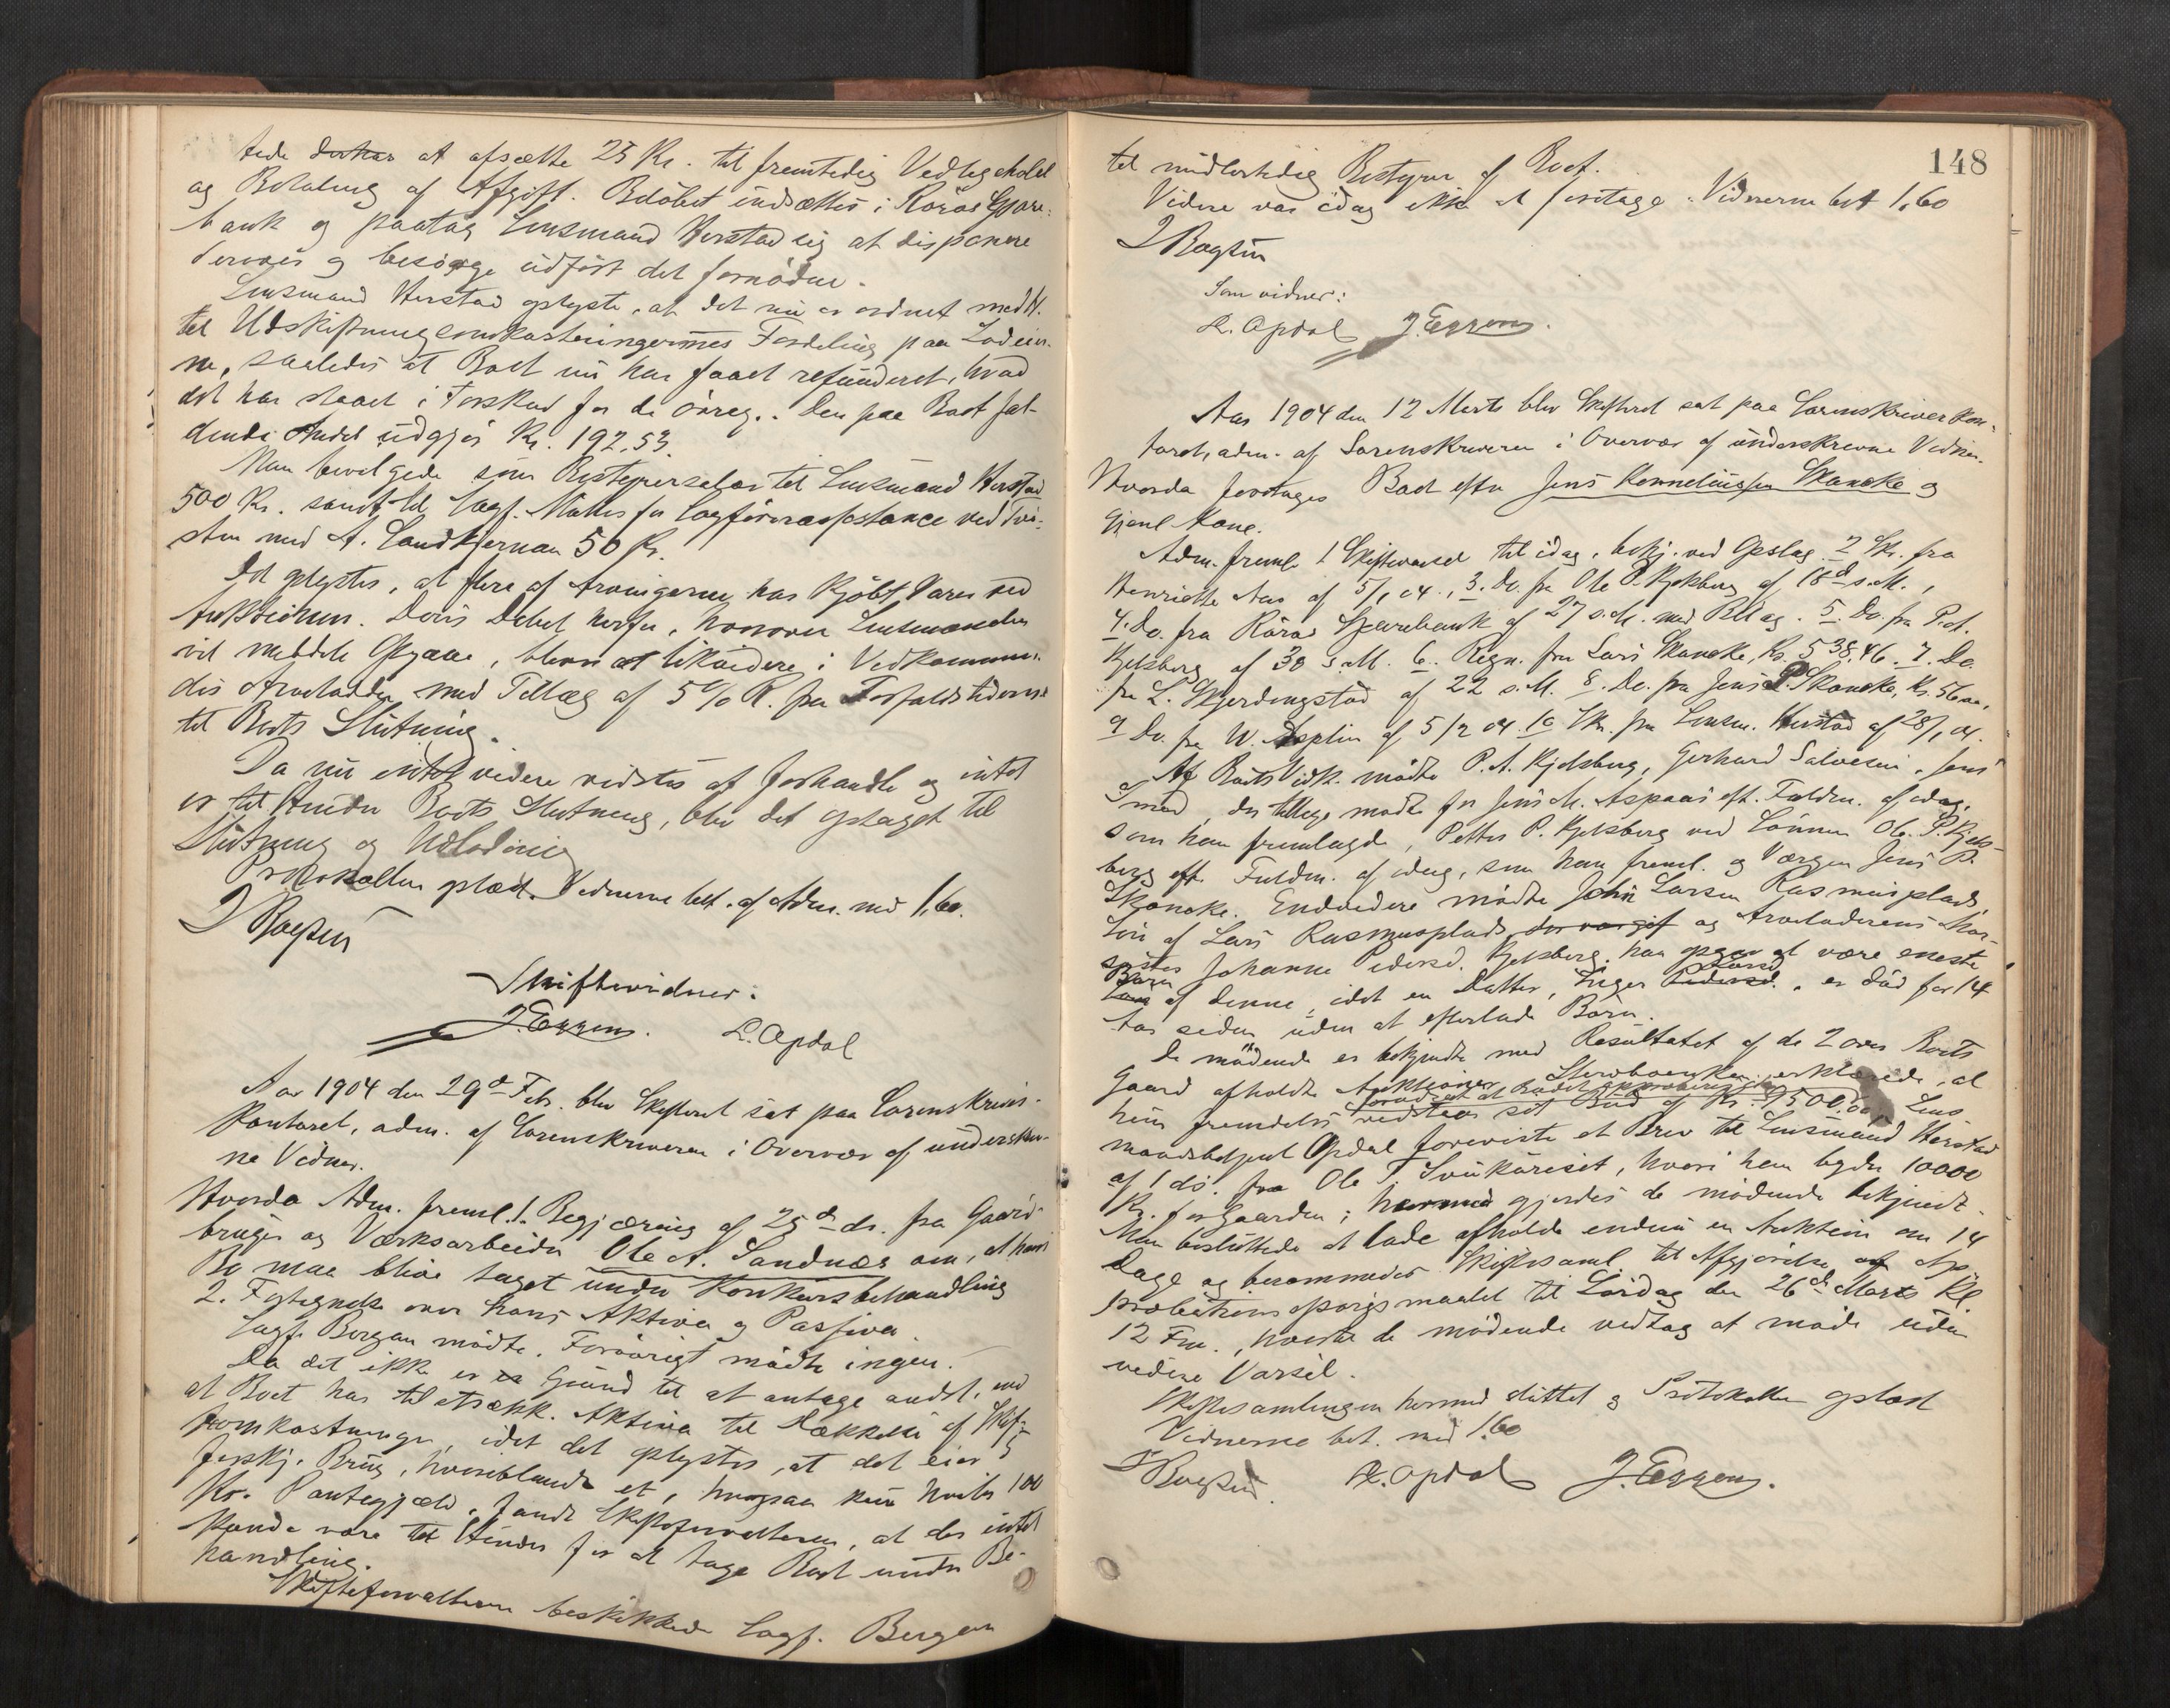 tede at afsætte 25 Kr. til fremtidig Vedligehold
og Betaling af Afgift. Beløbet indsættes i Røros Spare-
bank og paatog Lensmand Herstad sig at disponere
derover og besørge udført det fornødne.
Lensmand Herstad oplyste, at det nu er ordnet med H.t.
til Udskiftningsomkostningernes Fordeling paa Lodeier-
ne, saaledes at Boet nu har faaet refunderet, hvad
det har staaet i Forskud for de øvrige. Den paa Boet fal-
dende Andel udgjør Kr. 192,53.
Man bevilgede som Bestyrersalær til Lensmand Herstad
500 Kr. samt til Sagf. for Sagførerassistance ved Tvi-
sten med A. 50 Kr.
Det oplystes, at flere af Arvingerne har kjøbt Varer ved
Auktionen. Deres Debet herfor, hvorover Lensmanden
vil meddele Opgave, blev at likvidere i Vedkommen-
des Arvelodder med Tillæg af 5 % R. fra Forfaldstiderne
til Boets Slutning.
Da nu intet videre vidstes at forhandle og intet
er til Hinder Boets Slutning, blev det optaget til
Slutning og Udlodning
Protokollen oplæst. Vidnerne bet. af Adm. med 1,60.
J Bogsti
Skiftevidner:
J. Eggen. L. Opdal
Aar 1904 den 29d Feb. blev Skifteret sat paa Sorenskriver-
kontoret, adm. af Sorenskriveren i Overvær af underskrev-
ne Vidner.
Hvorda Adm. freml. 1. Begjæring af 25d ds. fra Gaard-
bruger og Værksarbeider Ole A. Sandnæs om, at hans
Bo maa blive taget under Konkursbehandling
2. Fortegnelse over hans Aktiva og Passiva.
Sagf. Bergan mødte. Forøvrigt mødte ingen.
Da det ikke er Grund til at antage andet, end
at Boet har tilstrækk. Aktiva til Dækkelse af Skif-
teomkostninger idet det oplystes, at det eier
forskj. Brug, hvoriblandt et, hvorpaa kun hviler 100
Kr. Pantegjæld, fandt Skifteforvalteren, at der intet
kunde være til Hinder for at tage Boet under Be-
handling.
Skifteforvalteren beskikkede Sagf. Bergan
148
til midlertidig Bestyrer af Boet.
Videre var idag ikke at foretage. Vidnerne bet 1,60
J Bogsti
Som vidner:
L. Opdal J. Eggen.
Aar 1904 den 12 Marts blev Skifteret sat paa Sorenskriverkon-
toret, adm. af Sorenskriveren i Overvær af underskrevne Vidner.
Hvorda foretages Boet efter Jens Korneliussen Skancke og
Gjenl. Kone.
Adm. freml. 1 Skiftevarsel til idag, bekj. ved Opslag. 2 Skr. fra
Henriette Aas af 5/1 04., 3. Do. fra Ole P. Kjelsberg af 18d s.M.,
4. Do. fra Røros Sparebank af 27 s.M. med Bilag. 5. Do. fra P.A.
Kjelsberg af 30 s.M. 6. Regn. fra Lars Skancke, Kr. 538,46. 7. Do.
fra L. Gjerdingstad af 22 s.M. 8. Do. fra Jens P. Skancke, Kr. 56,00,
9 Do. fra W. af 5/2 04. 10 Skr. fra Lensm. Herstad af 28/1 04.
Af Boets Vedk. mødte P.A. Kjelsberg, Gerhard Salvesen, Jens
der tillige mødte for Jens M. Aspaas eft. Fuldm. af idag,
som han fremlagde, Petter P. Kjelsberg ved Sønnen Ole P. Kjels-
berg eft. Fuldm. af idag, som han freml. og Værgen Jens P.
Skancke. Endvidere mødte John Larsen Rasmusplads,
Søn af Lars Rasmusplads der var gift og Arveladerens
søster Johanne Pedersd. Kjelsberg; han opgav at være eneste
Barn af denne, idet en Datter, Inger Larsd. Pedersd., er død for 14
Aar siden uden at efterlade Børn.
De mødende er bekjendte med Resultatet af de 2 over Boets
Gaard afholdte Auktioner. Sterboenken erklærede, at
hun fremdeles vedstaar sit Bud af Kr. 9500,00, Lens-
mandsbetjent Opdal foreviste et Brev til Lensmand Herstad
af 1 ds. fra Ole T. hvori han byder 10000
Kr. for Gaarden; hermed gjordes de mødende bekjendt.
Man besluttede at lade afholde endnu en Auktion om 14
Dage og berammedes Skiftesaml. til Afgjørelse af Ap-
probationsspørgsmaalet til Lørdag den 26de Marts Kl.
12 Fm., hvortil de mødende vedtog at møde uden
videre Varsel.
Skiftesamlingen hermed sluttet og Protokollen oplæst
Vidnerne bet. med 1,60
J Bogsti. L. Opdal J. Eggen.